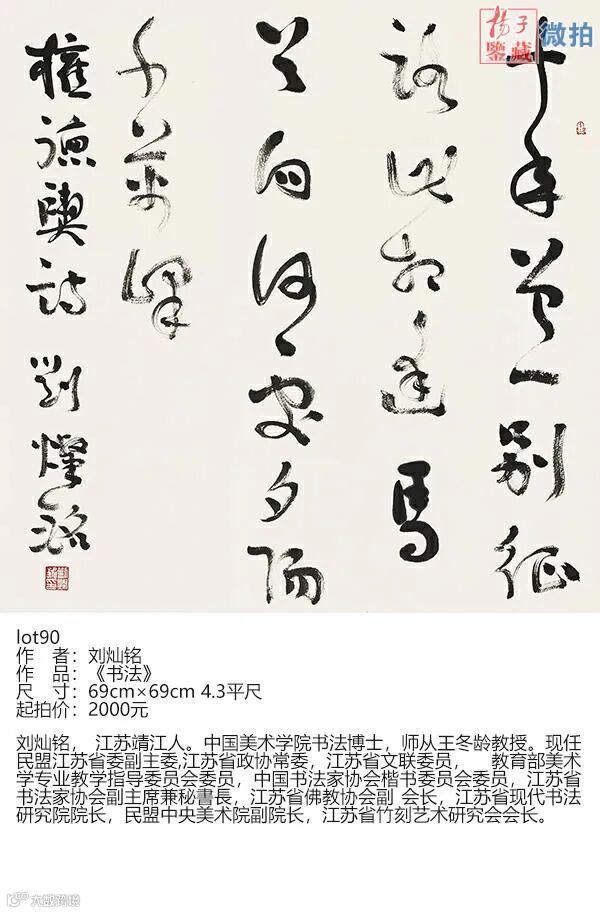 揚子
鑒藏
微拍
十年曾一别征
路此相逢马
首向何处夕阳
千万峰
權德輿詩 劉燦銘
lot90
作 者：刘灿铭
作 品：《书法》
尺 寸：69cm×69cm 4.3平尺
起拍价：2000元
刘灿铭， 江苏靖江人。中国美术学院书法博士，师从王冬龄教授。现任
民盟江苏省委副主委,江苏省政协常委，江苏省文联委员， 教育部美术
学专业教学指导委员会委员，中国书法家协会楷书委员会委员，江苏省
书法家协会副主席兼秘書長，江苏省佛教协会副 会长，江苏省现代书法
研究院院长，民盟中央美术院副院长，江苏省竹刻艺术研究会会长。
大威跨境